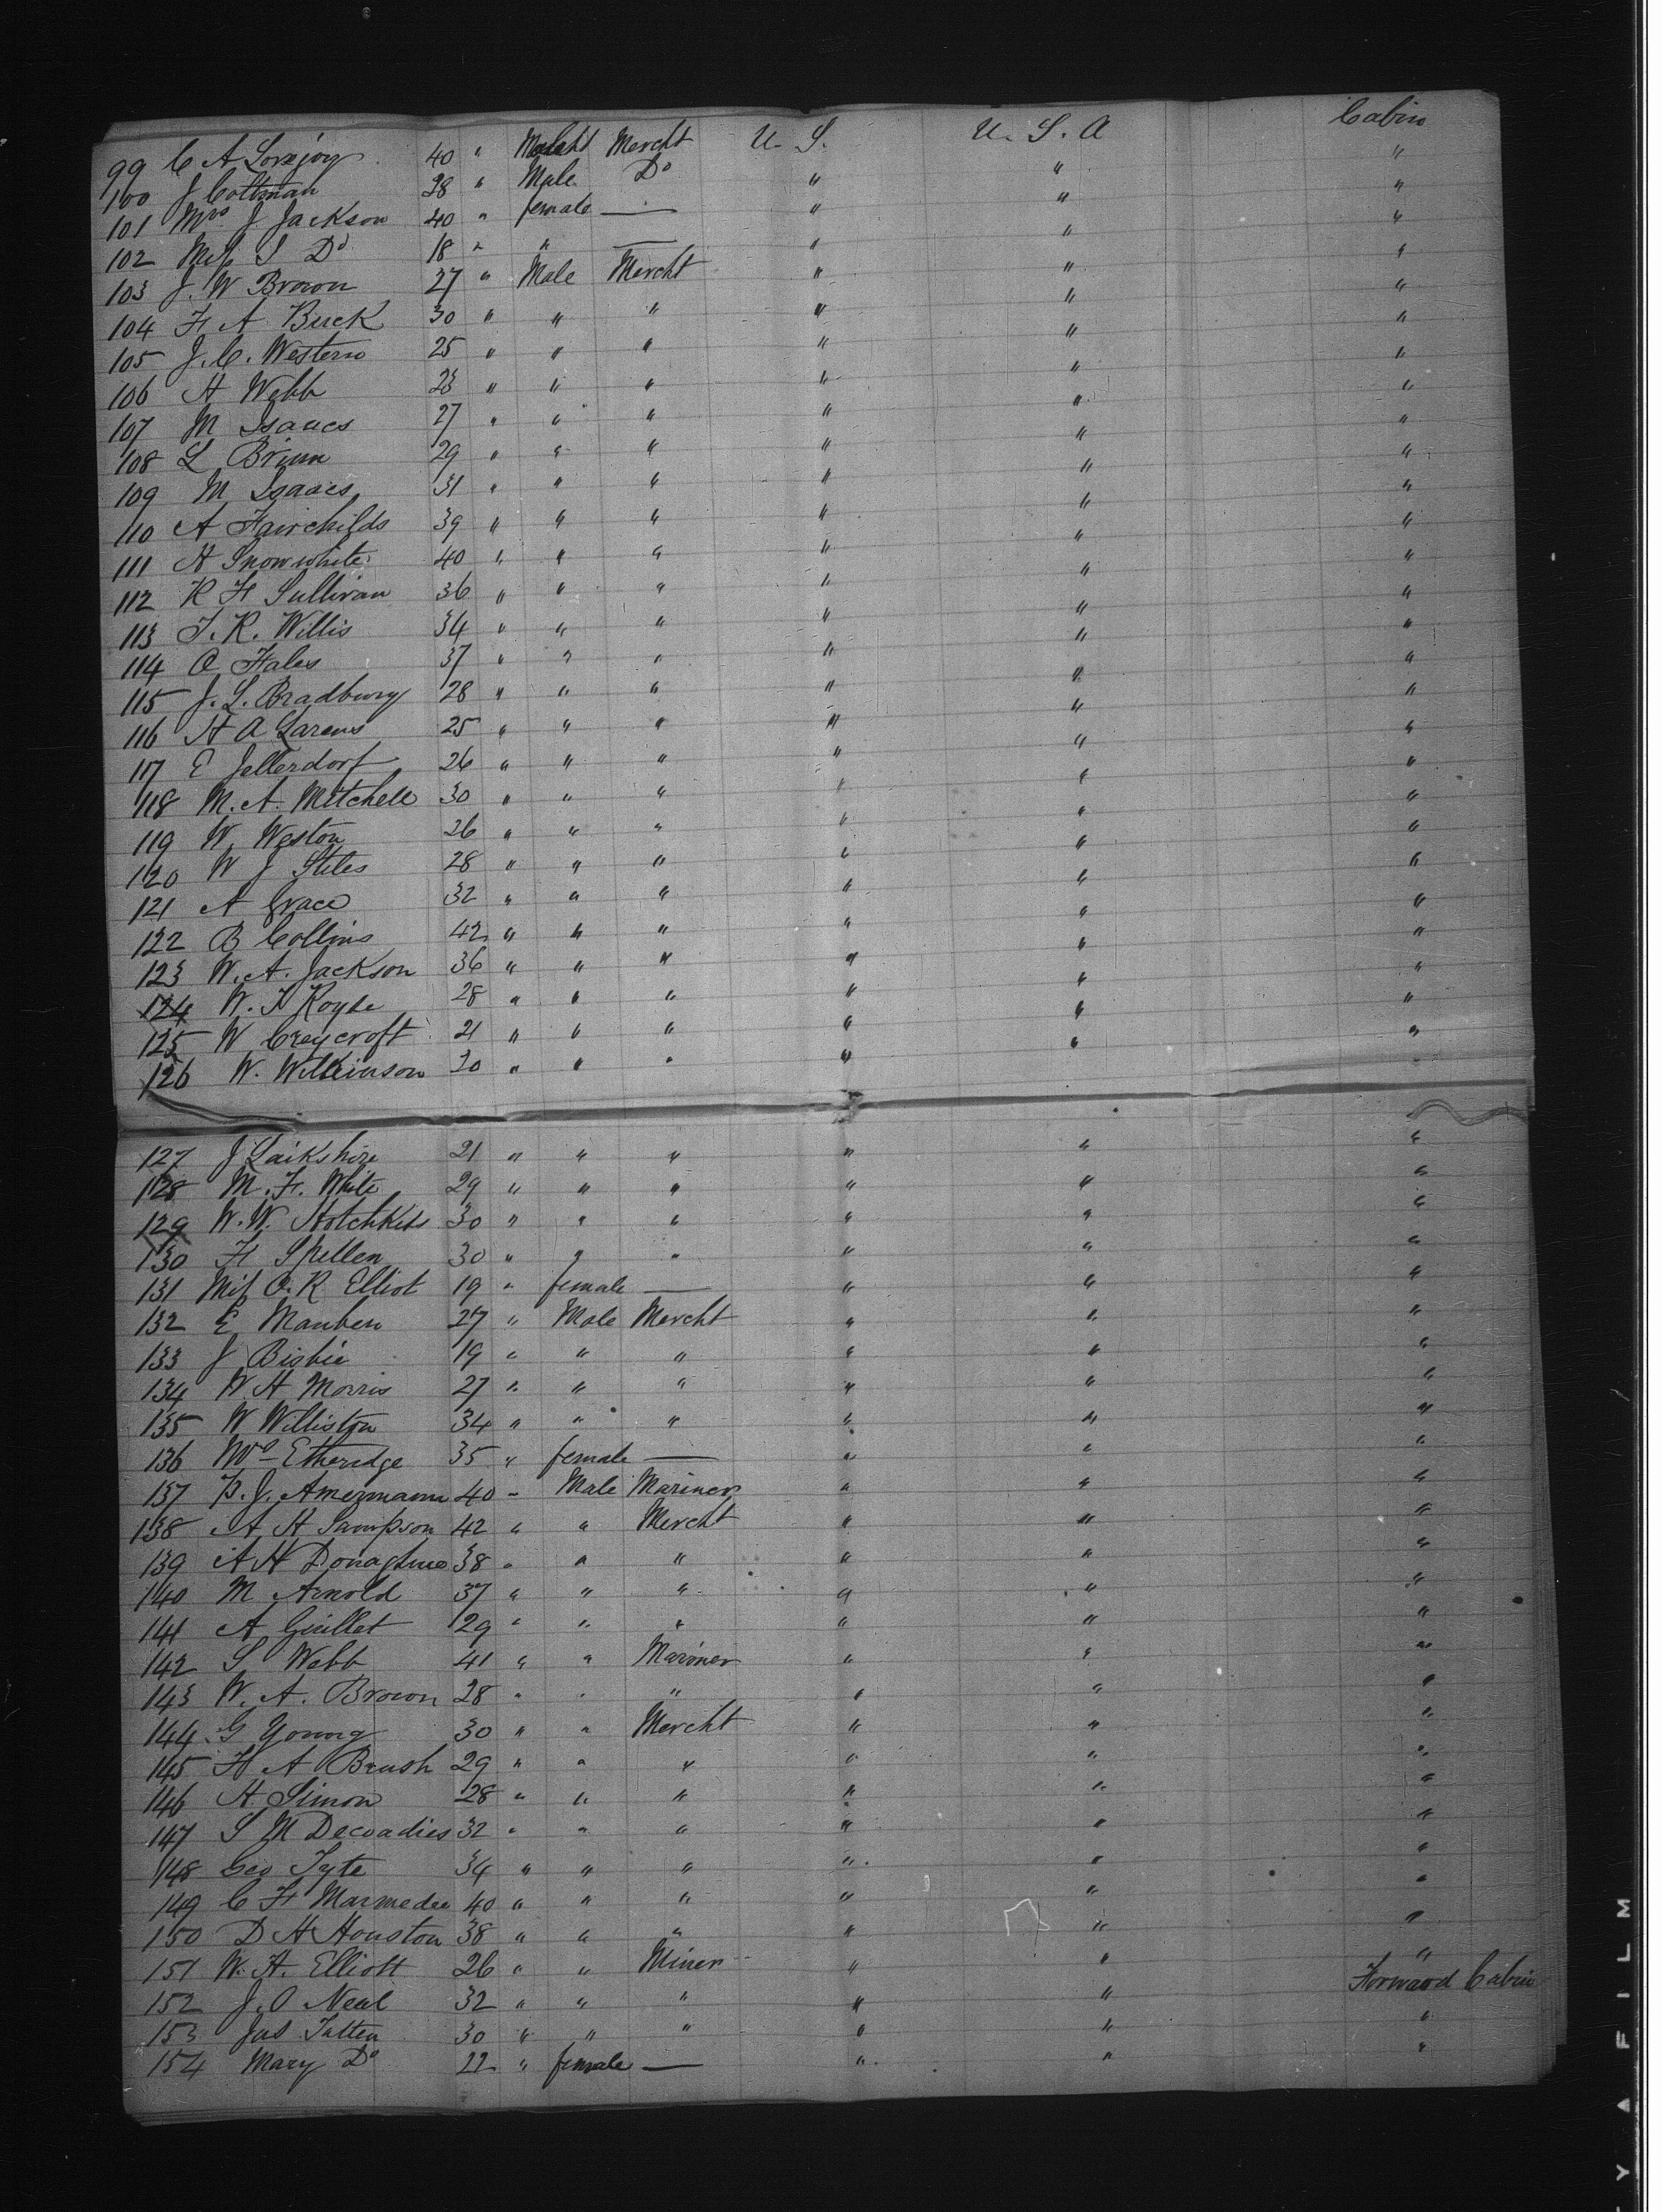 99 C A Lovejoy 40 " Male Mercht U. S. U. S. A Cabin
100 J Coltman 28 " Male Do " " "
101 Mrs J Jackson 40 " female — " " "
102 Miss S Do 18 " " — " " "
103 J. W Brown 27 " Male Mercht " " "
104 F A Buck 30 " " " " " "
105 J. C. Western 25 " " " " " "
106 H Webb 23 " " " " " "
107 M Isaacs 27 " " " " " "
108 L Brium 29 " " " " " "
109 M Isaacs 31 " " " " " "
110 A Fairchilds 39 " " " " " "
111 H Snowwhite 40 " " " " " "
112 R F Sullivan 36 " " " " " "
113 T. R. Willis 34 " " " " " "
114 O Fales 37 " " " " " "
115 J. L. Bradbury 28 " " " " " "
116 H A Larens 25 " " " " " "
117 E Jellerdorf 26 " " " " " "
118 M. A. Mitchell 30 " " " " " "
119 W Weston 26 " " " " " "
120 W J Stiles 28 " " " " " "
121 A Grace 32 " " " " " "
122 B Collins 42 " " " " " "
123 W. A. Jackson 36 " " " " " "
124 W. F 28 " " " " " "
125 W Creycroft 21 " " " " " "
126 W. Wilkinson 30 " " " " " "
127 J Laikshire 21 " " " " " "
128 M. F. White 29 " " " " " "
129 W. W. Hotchkiss 30 " " " " " "
130 F Spellen 30 " " " " " "
131 Miss O. R Elliot 19 " female — " " "
132 E Manhen 27 " Male Mercht " " "
133 J Bisbie 19 " " " " " "
134 W H Morris 27 " " " " " "
135 W Williston 34 " " " " " "
136 Mrs Etheridge 35 " female — " " "
137 P. J. Amermann 40 " Male Mariner " " "
138 A H Sampson 42 " " Mercht " " "
139 A H Donaghue 38 " " " " " "
140 M Arnold 37 " " " " " "
141 A Guillet 29 " " " " " "
142 S Webb 41 " " Mariner " " "
143 W. A. Brown 28 " " " " " "
144 G Young 30 " " Mercht " " "
145 H A Brush 29 " " " " " "
146 H Simon 28 " " " " " "
147 S M Decoadies 32 " " " " " "
148 Geo Tyte 34 " " " " " "
149 C F Marmedee 40 " " " " " "
150 D H Houston 38 " " " " " "
151 W. H. Elliott 26 " " Miner " " "
152 J. O Neal 32 " " " " " Forward Cabin
153 Jas Tatten 30 " " " " " "
154 Mary Do 22 " female — " " "
Y A FILM